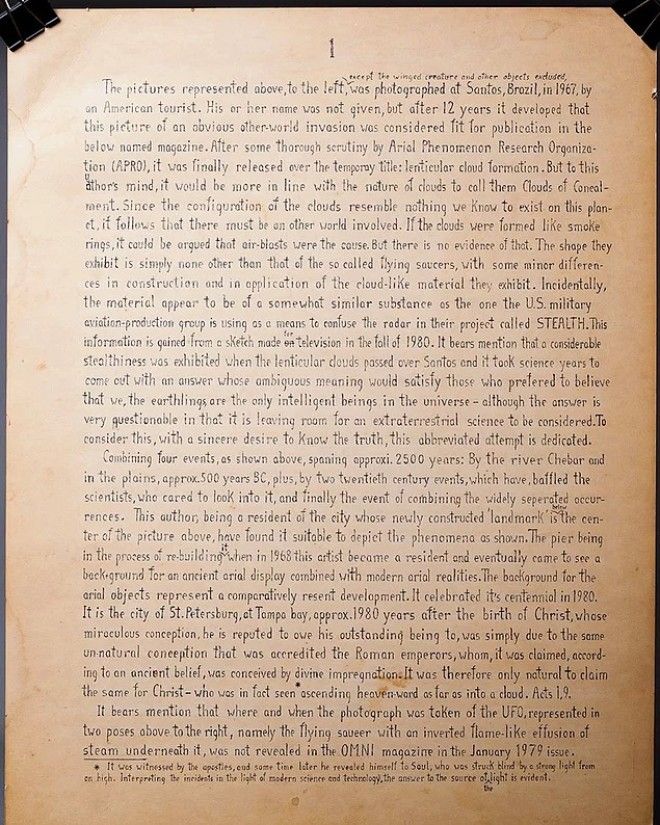 1
except the winged creature and other objects excluded,
The pictures represented above, to the left, was photographed at Santos, Brazil, in 1967, by
an American tourist. His or her name was not given, but after 12 years it developed that
this picture of an obvious other-world invasion was considered fit for publication in the
below named magazine. After some thorough scrutiny by Arial Phenomenon Research Organiza-
tion (APRO), it was finally released over the temporay title: lenticular cloud formation. But to this
u
athor's mind, it would be more in line with the nature of clouds to call them Clouds of Conceal-
ment. Since the configuration of the clouds resemble nothing we know to exist on this plan-
et, it follows that there must be an other world involved. If the clouds were formed like smoke
rings, it could be argued that air-blasts were the cause. But there is no evidence of that. The shape they
exhibit is simply none other than that of the so called flying saucers, with some minor differen-
ces in construction and in application of the cloud-like material they exhibit. Incidentally,
the material appear to be of a somewhat similar substance as the one the U.S. military
aviation-production group is using as a means to confuse the radar in their project called STEALTH. This
for
information is gained from a sketch made on television in the fall of 1980. It bears mention that a considerable
stealthiness was exhibited when the lenticular clouds passed over Santos and it took science years to
come out with an answer whose ambiguous meaning would satisfy those who prefered to believe
that we, the earthlings, are the only intelligent beings in the universe - although the answer is
very questionable in that it is leaving room for an extraterrestrial science to be considered. To
consider this, with a sincere desire to know the truth, this abbreviated attempt is dedicated.
Combining four events, as shown above, spaning approxi. 2500 years: By the river Chebar and
in the plains, approx. 500 years BC, plus, by two twentieth century events, which have, baffled the
scientists, who cared to look into it, and finally the event of combining the widely seperated occur-
below
rences. This author, being a resident of the city whose newly constructed 'landmark' is the cen-
ter of the picture above, have found it suitable to depict the phenomena as shown. The pier being
it
in the process of re-building when in 1968 this artist became a resident and eventually came to see a
background for an ancient arial display combined with modern arial realities. The background for the
arial objects represent a comparatively resent development. It celebrated it's centennial in 1980.
It is the city of St. Petersburg, at Tampa bay, approx. 1980 years after the birth of Christ, whose
miraculous conception, he is reputed to owe his outstanding being to, was simply due to the same
un-natural conception that was accredited the Roman emperors, whom, it was claimed, accord-
ing to an ancient belief, was conceived by divine impregnation. It was therefore only natural to claim
the same for Christ - who was in fact seen ascending heaven-ward as far as into a cloud.* Acts 1,9.
It bears mention that where and when the photograph was taken of the UFO, represented in
two poses above to the right, namely the flying saucer with an inverted flame-like effusion of
steam underneath it, was not revealed in the OMNI magazine in the January 1979 issue.
* It was witnessed by the apostles, and some time later he revealed himself to Saul, who was struck blind by a strong light from
on high. Interpreting the incidents in the light of modern science and technology, the answer to the source of light is evident.
the